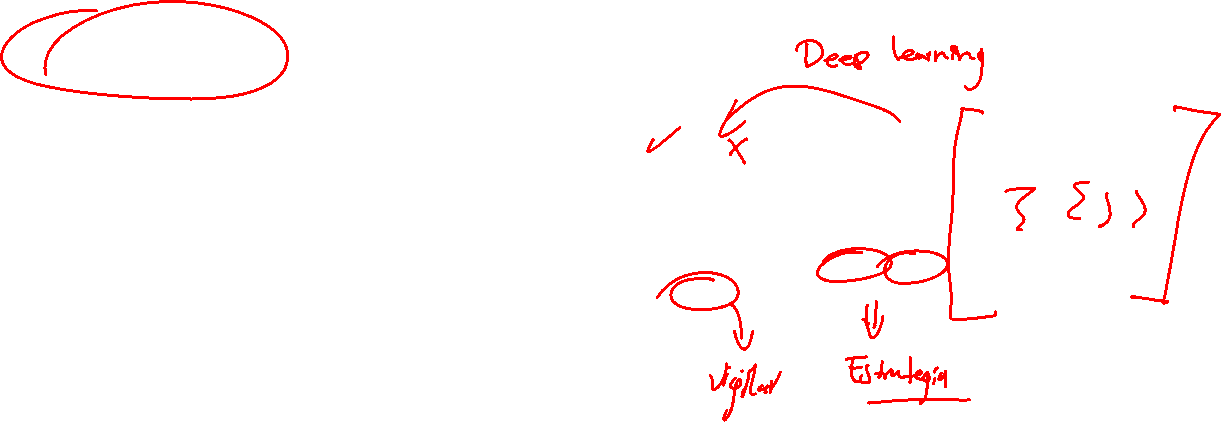 Deep learning
✓ X
[ } { ) ) ]
Vigilar
Estrategia